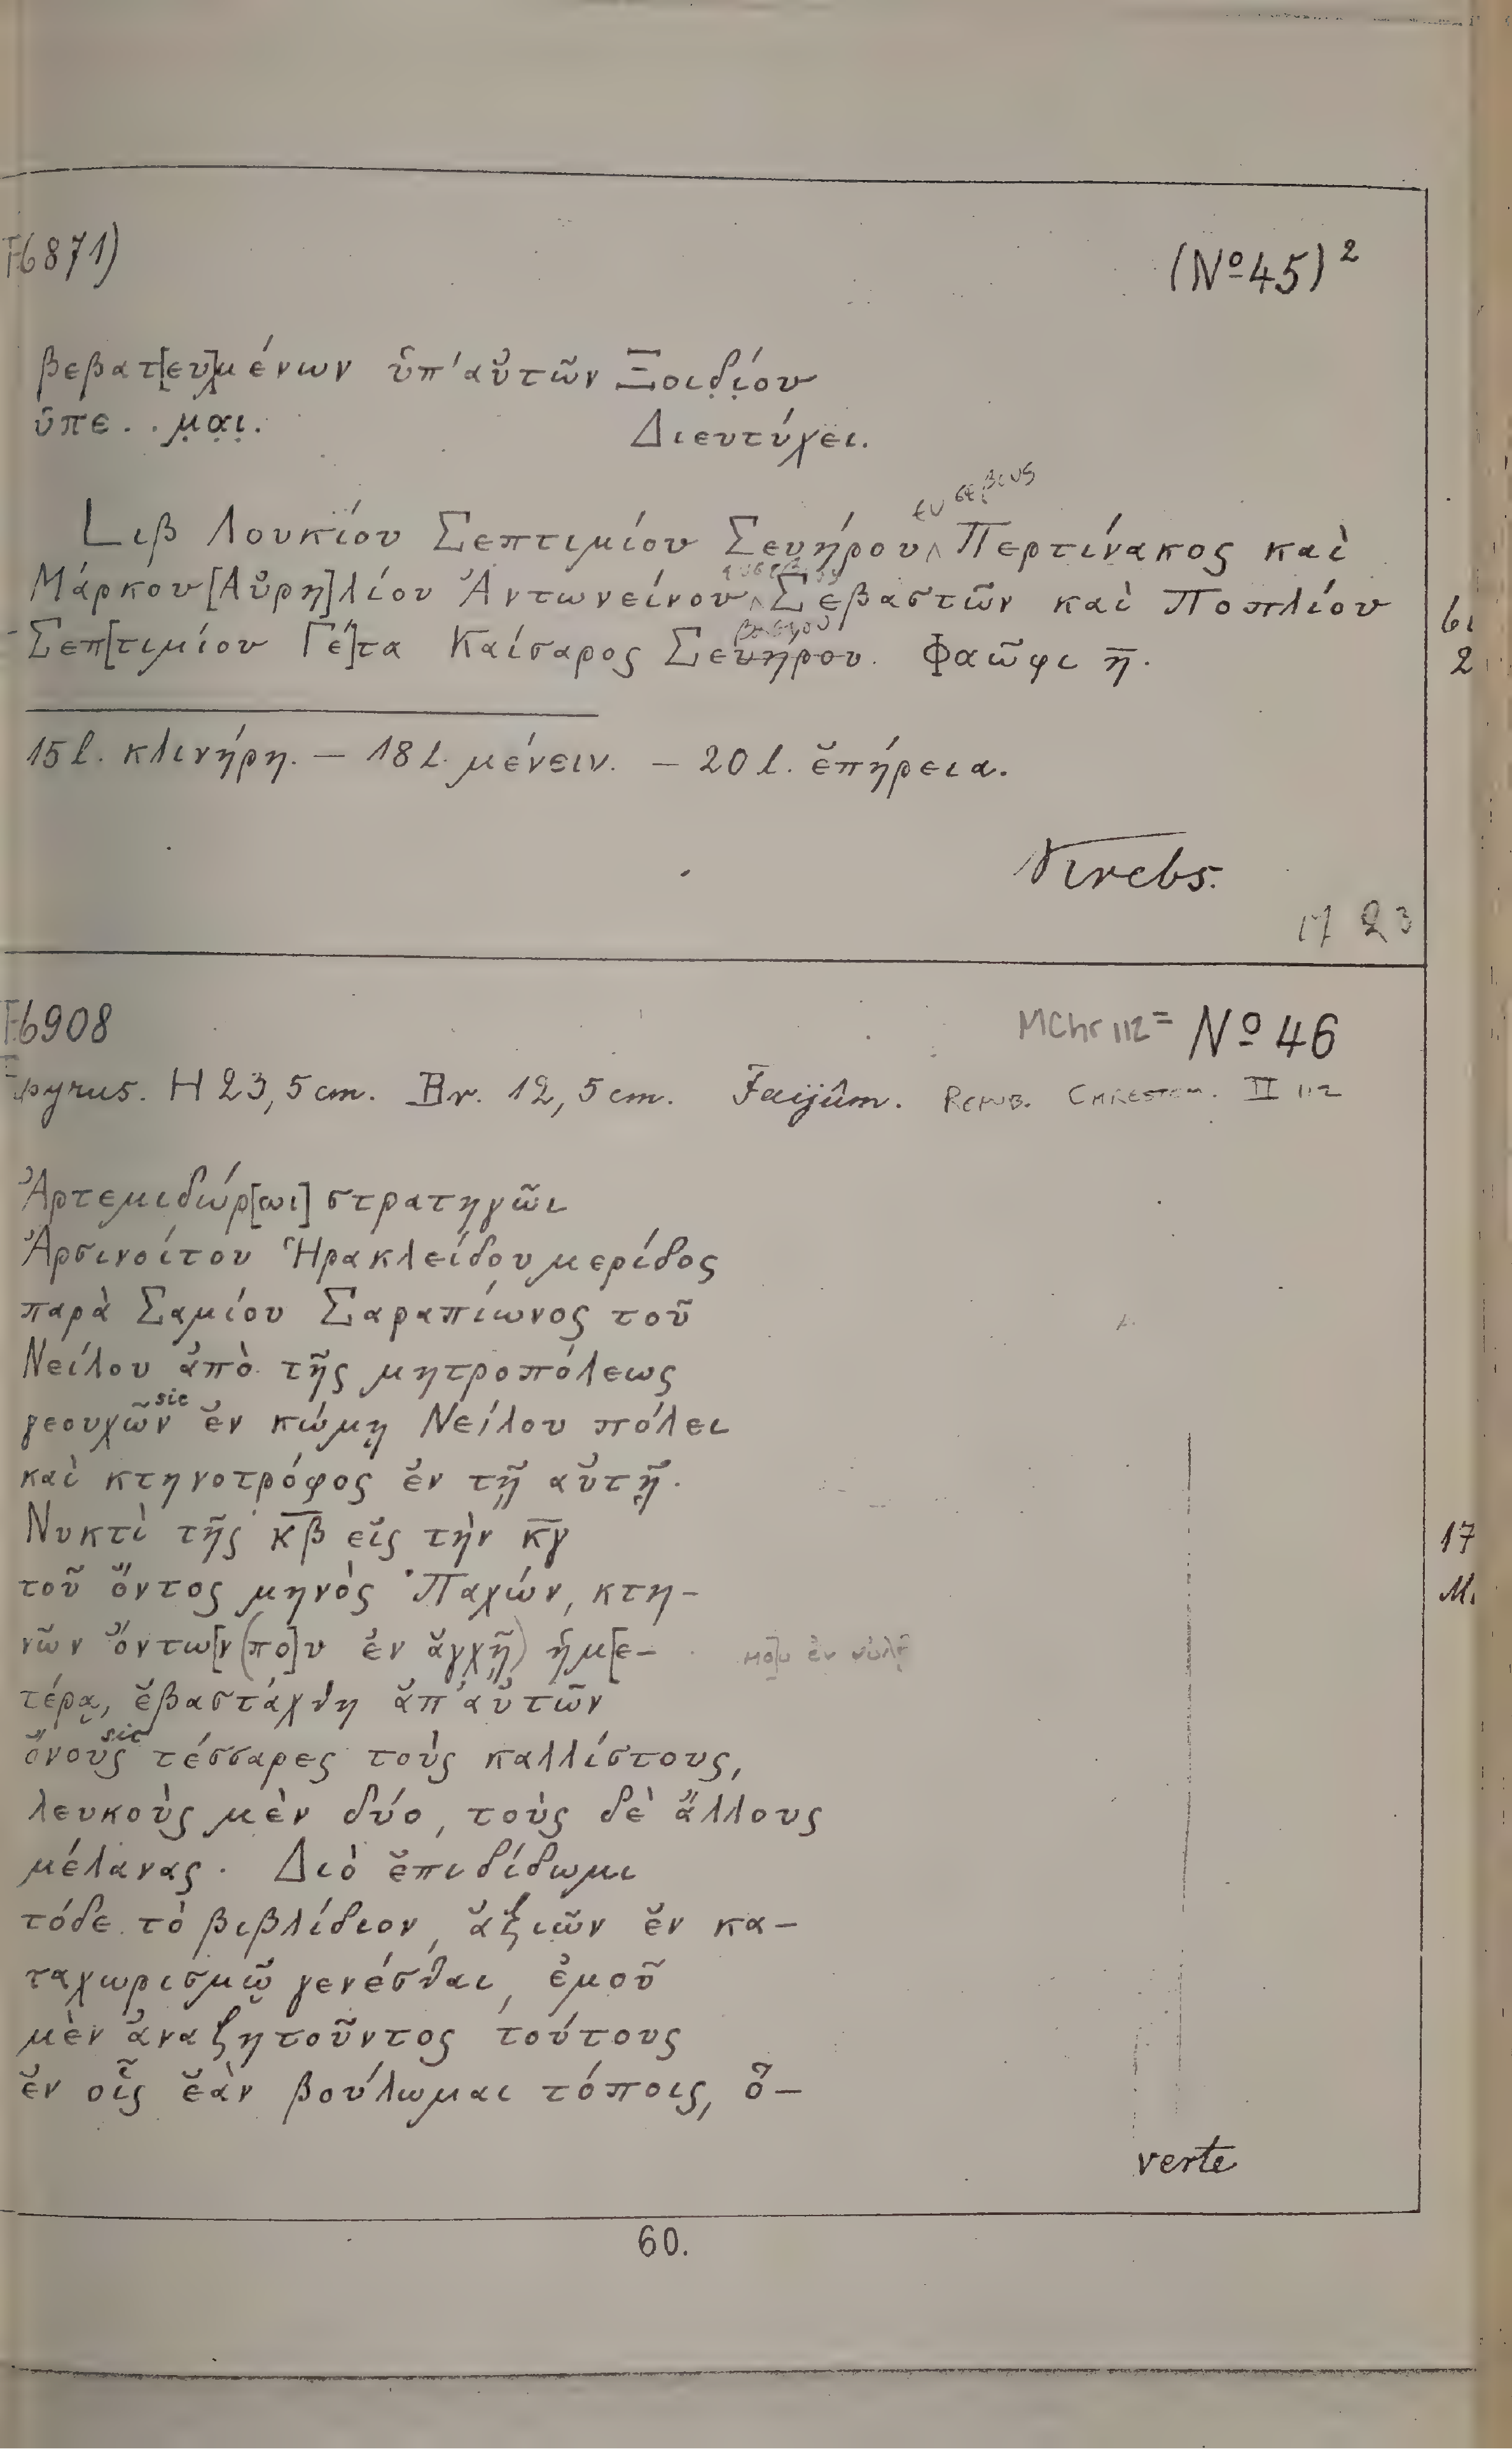 P6871)
(Nº 45)²
βεβατ[ευ]μένων ὑπ' αὐτῶν Ξοιδίου
ὑπε . . μαι.
Διευτύχει.
ευσεβους
Lιβ Λουκίου Σεπτιμίου Σευήρου Περτίνακος καὶ
Μάρκου [Αὐρη]λίου Ἀντωνείνου Σεβαστῶν καὶ Ποπλίου
Σεπ[τιμίου Γέ]τα Καίσαρος Σευήρου. Φαῶφι η̄.
15 l. κλινήρη. — 18 l. μένειν. — 20 l. ἐπήρεια.
Krebs.
17 23
P6908
MChr 112 = Nº 46
pyrus. H 23,5 cm. Br. 12,5 cm. Faijûm. Repub. Chrestom. II 112
Ἀρτεμιδώρ[ωι] στρατηγῶι
Ἀρσινοίτου Ἡρακλείδου μερίδος
παρὰ Σαμίου Σαραπίωνος τοῦ
Νείλου ἀπὸ τῆς μητροπόλεως
sic
γεουχῶν ἐν κώμῃ Νείλου πόλει
καὶ κτηνοτρόφος ἐν τῇ αὐτῇ.
Νυκτὶ τῆς κ̄β̄ εἰς τὴν κ̄γ̄
τοῦ ὄντος μηνὸς Παχών, κτη-
νῶν ὄντω[ν (πο]υ ἐν ἀγχῇ) ἡμ[ε-
μο]υ ἐν αὐλῇ
τέρᾳ, ἐβαστάχθη ἀπ' αὐτῶν
sic
ὄνους τέσσαρες τοὺς καλλίστους,
λευκοὺς μὲν δύο, τοὺς δὲ ἄλλους
μέλανας. Διὸ ἐπιδίδωμι
τόδε τὸ βιβλίδιον, ἀξιῶν ἐν κα-
ταχωρισμῷ γενέσθαι, ἐμοῦ
μὲν ἀναζητοῦντος τούτους
ἐν οἷς ἐὰν βούλωμαι τόποις, ὅ-
verte
60.
17